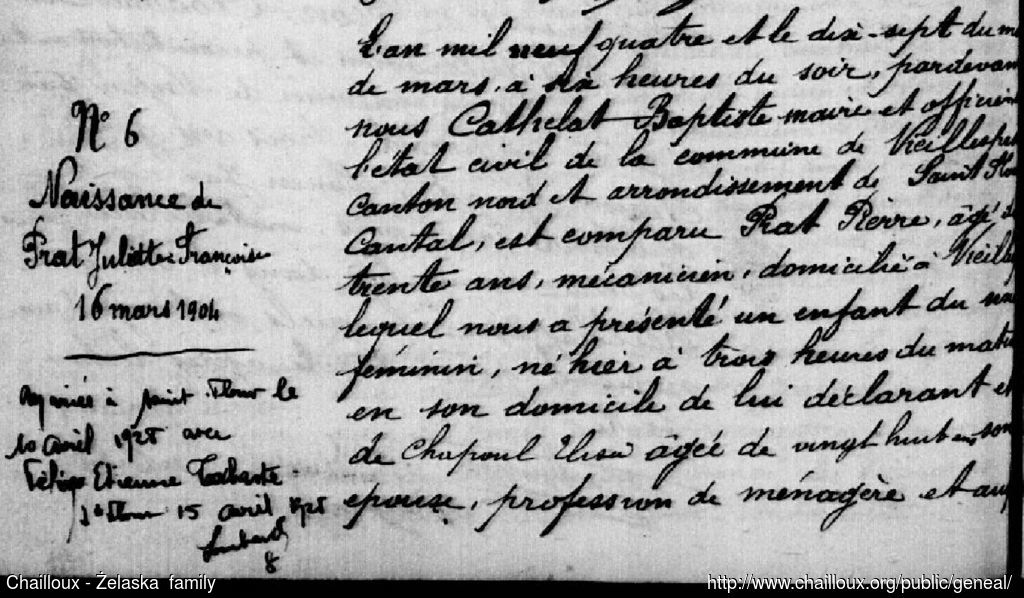 N° 6
Naissance de
Prat Juliette Françoise
16 mars 1904
à saint Flour le
10 avril 1928 avec
Etienne
15 avril 1928
L'an mil neuf quatre et le dix-sept du m
de mars, à six heures du soir, pardevan
nous Cathelat Baptiste maire et officier
l'état civil de la commune de Vieillesp
Canton nord et arrondissement de Saint Flou
Cantal, est comparu Prat Pierre, âgé de
trente ans, mécanicien, domicilié à Vieill
lequel nous a présenté un enfant du
féminin, né hier à trois heures du mati
en son domicile de lui déclarant et
de Chapoul Elisa âgée de vingt huit ans son
epouse, profession de ménagère et au
Chailloux - Żelaska family
http://www.chailloux.org/public/geneal/